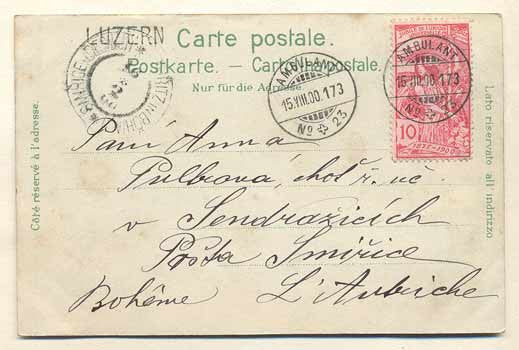 LUZERN
Carte postale.
Postkarte. – Cartolina postale.
Nur für die Adresse.
AMBULANT
15.VIII.00.173
No 23
AMBULANT
15.VIII.00.173
No 23
10
Côté réservé à l'adresse.
Lato riservato all' indirizzo
Paní Anna
Pulbrová, choť ř. uč.
v Sendražicích
Pošta Smiřice
Bohême L'Autriche